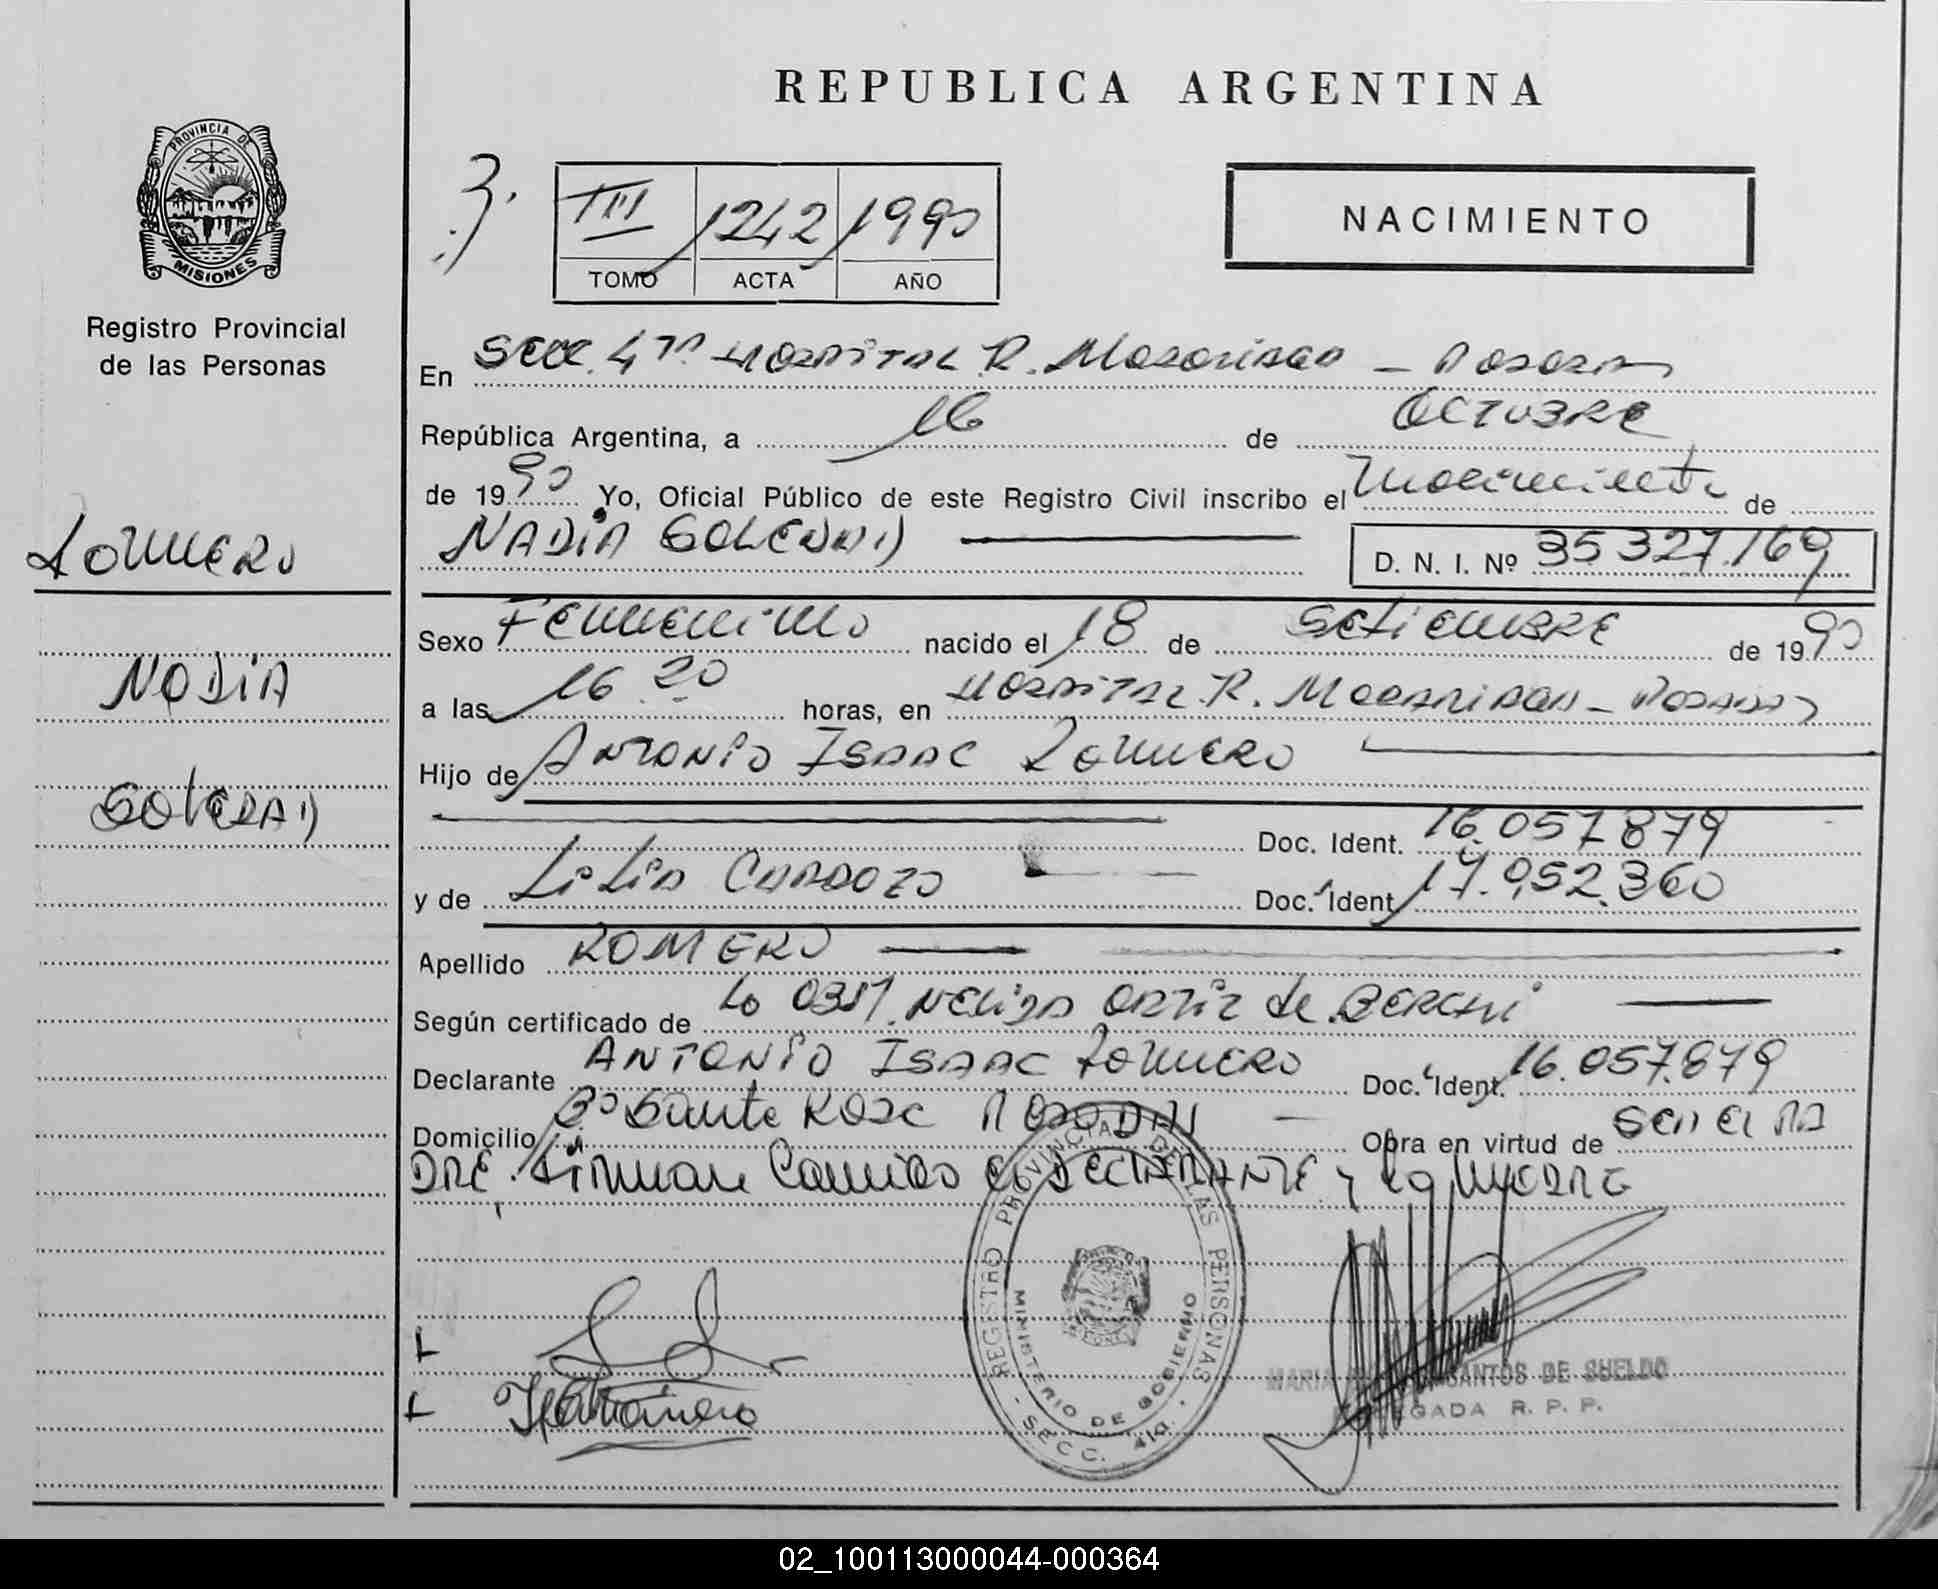 REPUBLICA ARGENTINA
PROVINCIA DE
MISIONES
Registro Provincial
de las Personas
III 1242 1990
TOMO ACTA AÑO
NACIMIENTO
En Secc. 4ta HOSPITAL R. Madariaga - Posadas
República Argentina, a 16 de OCTUBRE
de 1990 Yo, Oficial Público de este Registro Civil inscribo el Nacimiento de
NADIA SOLEDAD D. N. I. Nº 35327.169
ROMERO
NADIA
SOLEDAD
Sexo Femenino nacido el 18 de SETIEMBRE de 1990
a las 16 20 horas, en HOSPITAL R. Madariaga - Posadas
Hijo de ANTONIO ISAAC ROMERO
Doc. Ident. 16.057.879
y de Lilia Cardozo Doc. Ident. 17.952.360
Apellido ROMERO
Según certificado de Lo Obst. Nelida Ortiz de
Declarante ANTONIO ISAAC ROMERO Doc. Ident. 16.057.879
Domicilio Bº Santa Rosa Posadas Obra en virtud de ser el PA
DRE. Firman conmigo el DECLARANTE y la MADRE
REGISTRO PROVINCIAL DE LAS PERSONAS
MINISTERIO DE GOBIERNO
- SECC. 4ta. -
MARIA SANTOS DE SUELDO
DELEGADA R. P. P.
02_100113000044-000364